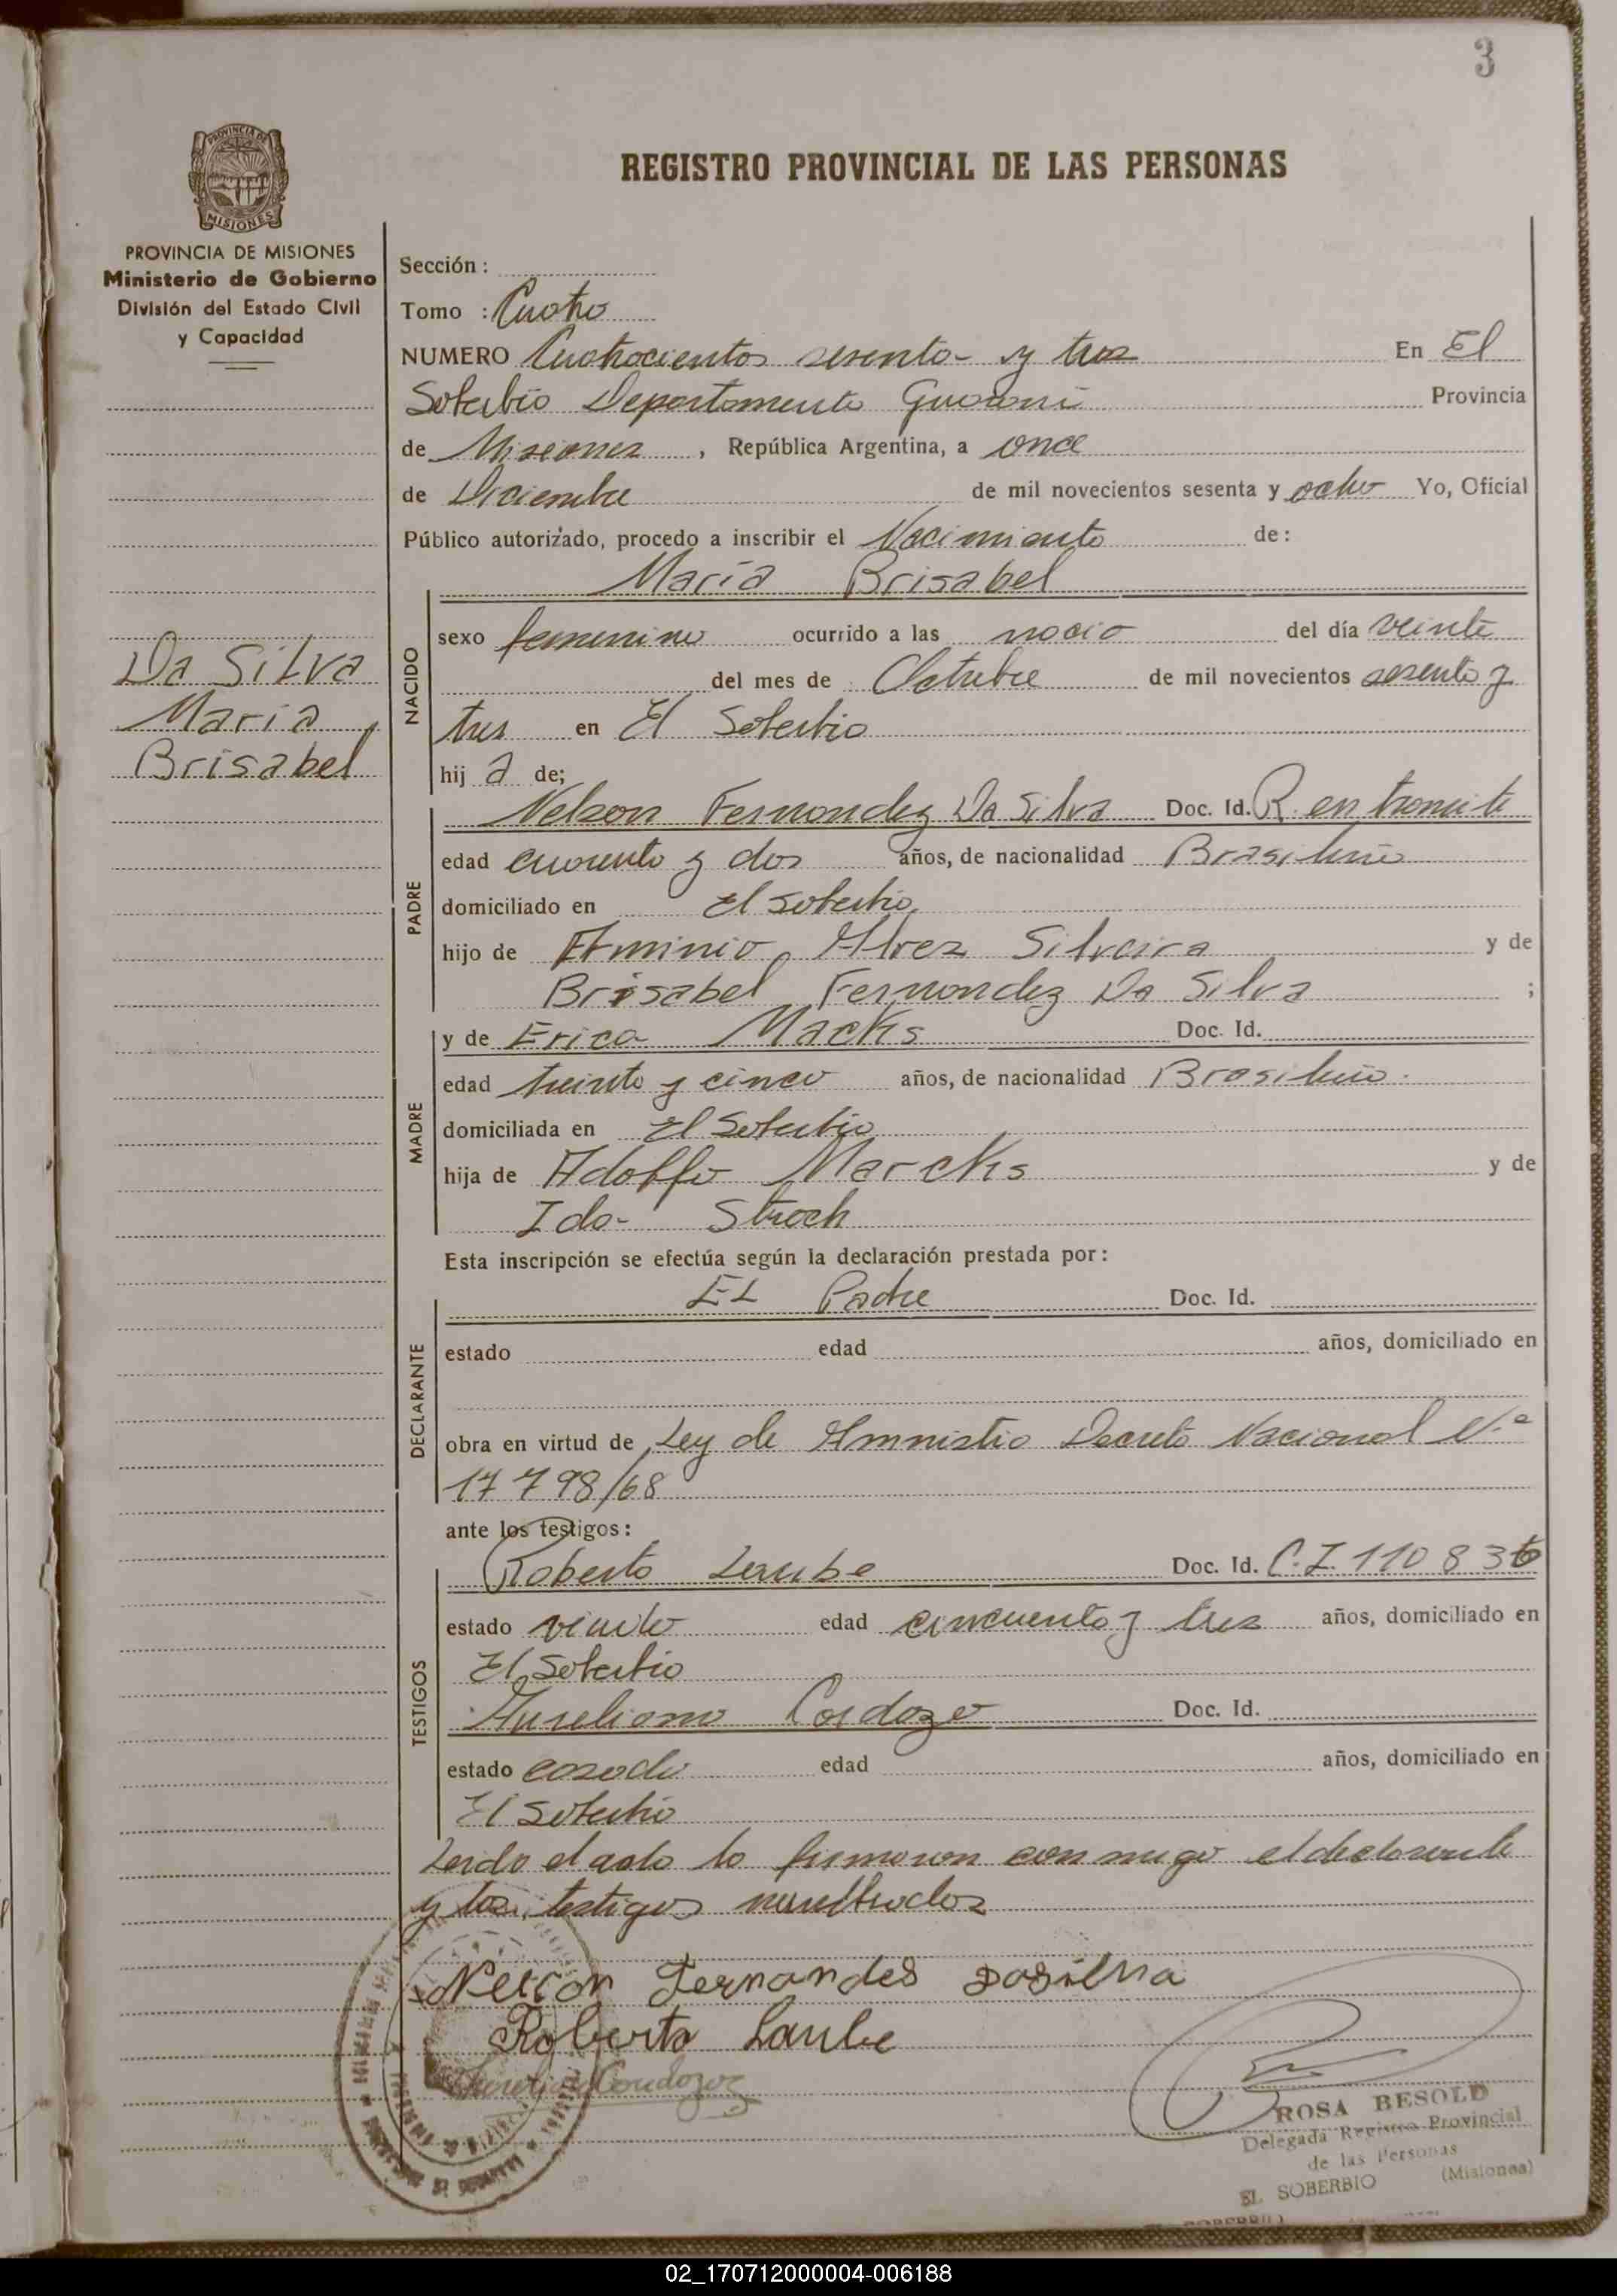 3
PROVINCIA DE
MISIONES
REGISTRO PROVINCIAL DE LAS PERSONAS
PROVINCIA DE MISIONES
Ministerio de Gobierno
División del Estado Civil
y Capacidad
Da Silva
Maria
Brisabel
Sección :
Tomo : Cuatro
NUMERO Cuatrocientos sesenta y tres En El
Soberbio Departamento Guarani Provincia
de Misiones , República Argentina, a once
de Diciembre de mil novecientos sesenta y ocho Yo, Oficial
Público autorizado, procedo a inscribir el Nacimiento de:
María Brisabel
NACIDO
sexo femenino ocurrido a las del día veinte
del mes de Octubre de mil novecientos sesenta y
tres en El Soberbio
hij a de;
PADRE
Nelson Fernandez Da Silva Doc. Id. R. en tramite
edad cuarenta y dos años, de nacionalidad Brasileño
domiciliado en El Soberbio
hijo de Arminio Alvez Silveira y de
Brisabel Fernandez Da Silva ;
MADRE
y de Erica Macks Doc. Id.
edad treinta y cinco años, de nacionalidad Brasileña.
domiciliada en El Soberbio
hija de Adolfo Marcks y de
Ida Stroch
Esta inscripción se efectúa según la declaración prestada por:
DECLARANTE
EL Padre Doc. Id.
estado edad años, domiciliado en
obra en virtud de Ley de Amnistia Decreto Nacional Nº
17798/68
ante los testigos:
TESTIGOS
Roberto Laube Doc. Id. C.I. 110836
estado viudo edad cincuenta y tres años, domiciliado en
El Soberbio
Aureliano Cardozo Doc. Id.
estado casado edad años, domiciliado en
El Soberbio
Leido el acta la firmaron conmigo el declarante
y los testigos
Nelson Fernandes Dasilva
Roberto Laube
ROSA BESOLD
Delegada Registro Provincial
de las Personas
EL SOBERBIO (Misiones)
02_170712000004-006188